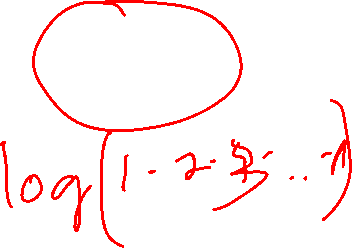 log(1·2·3·...·n)